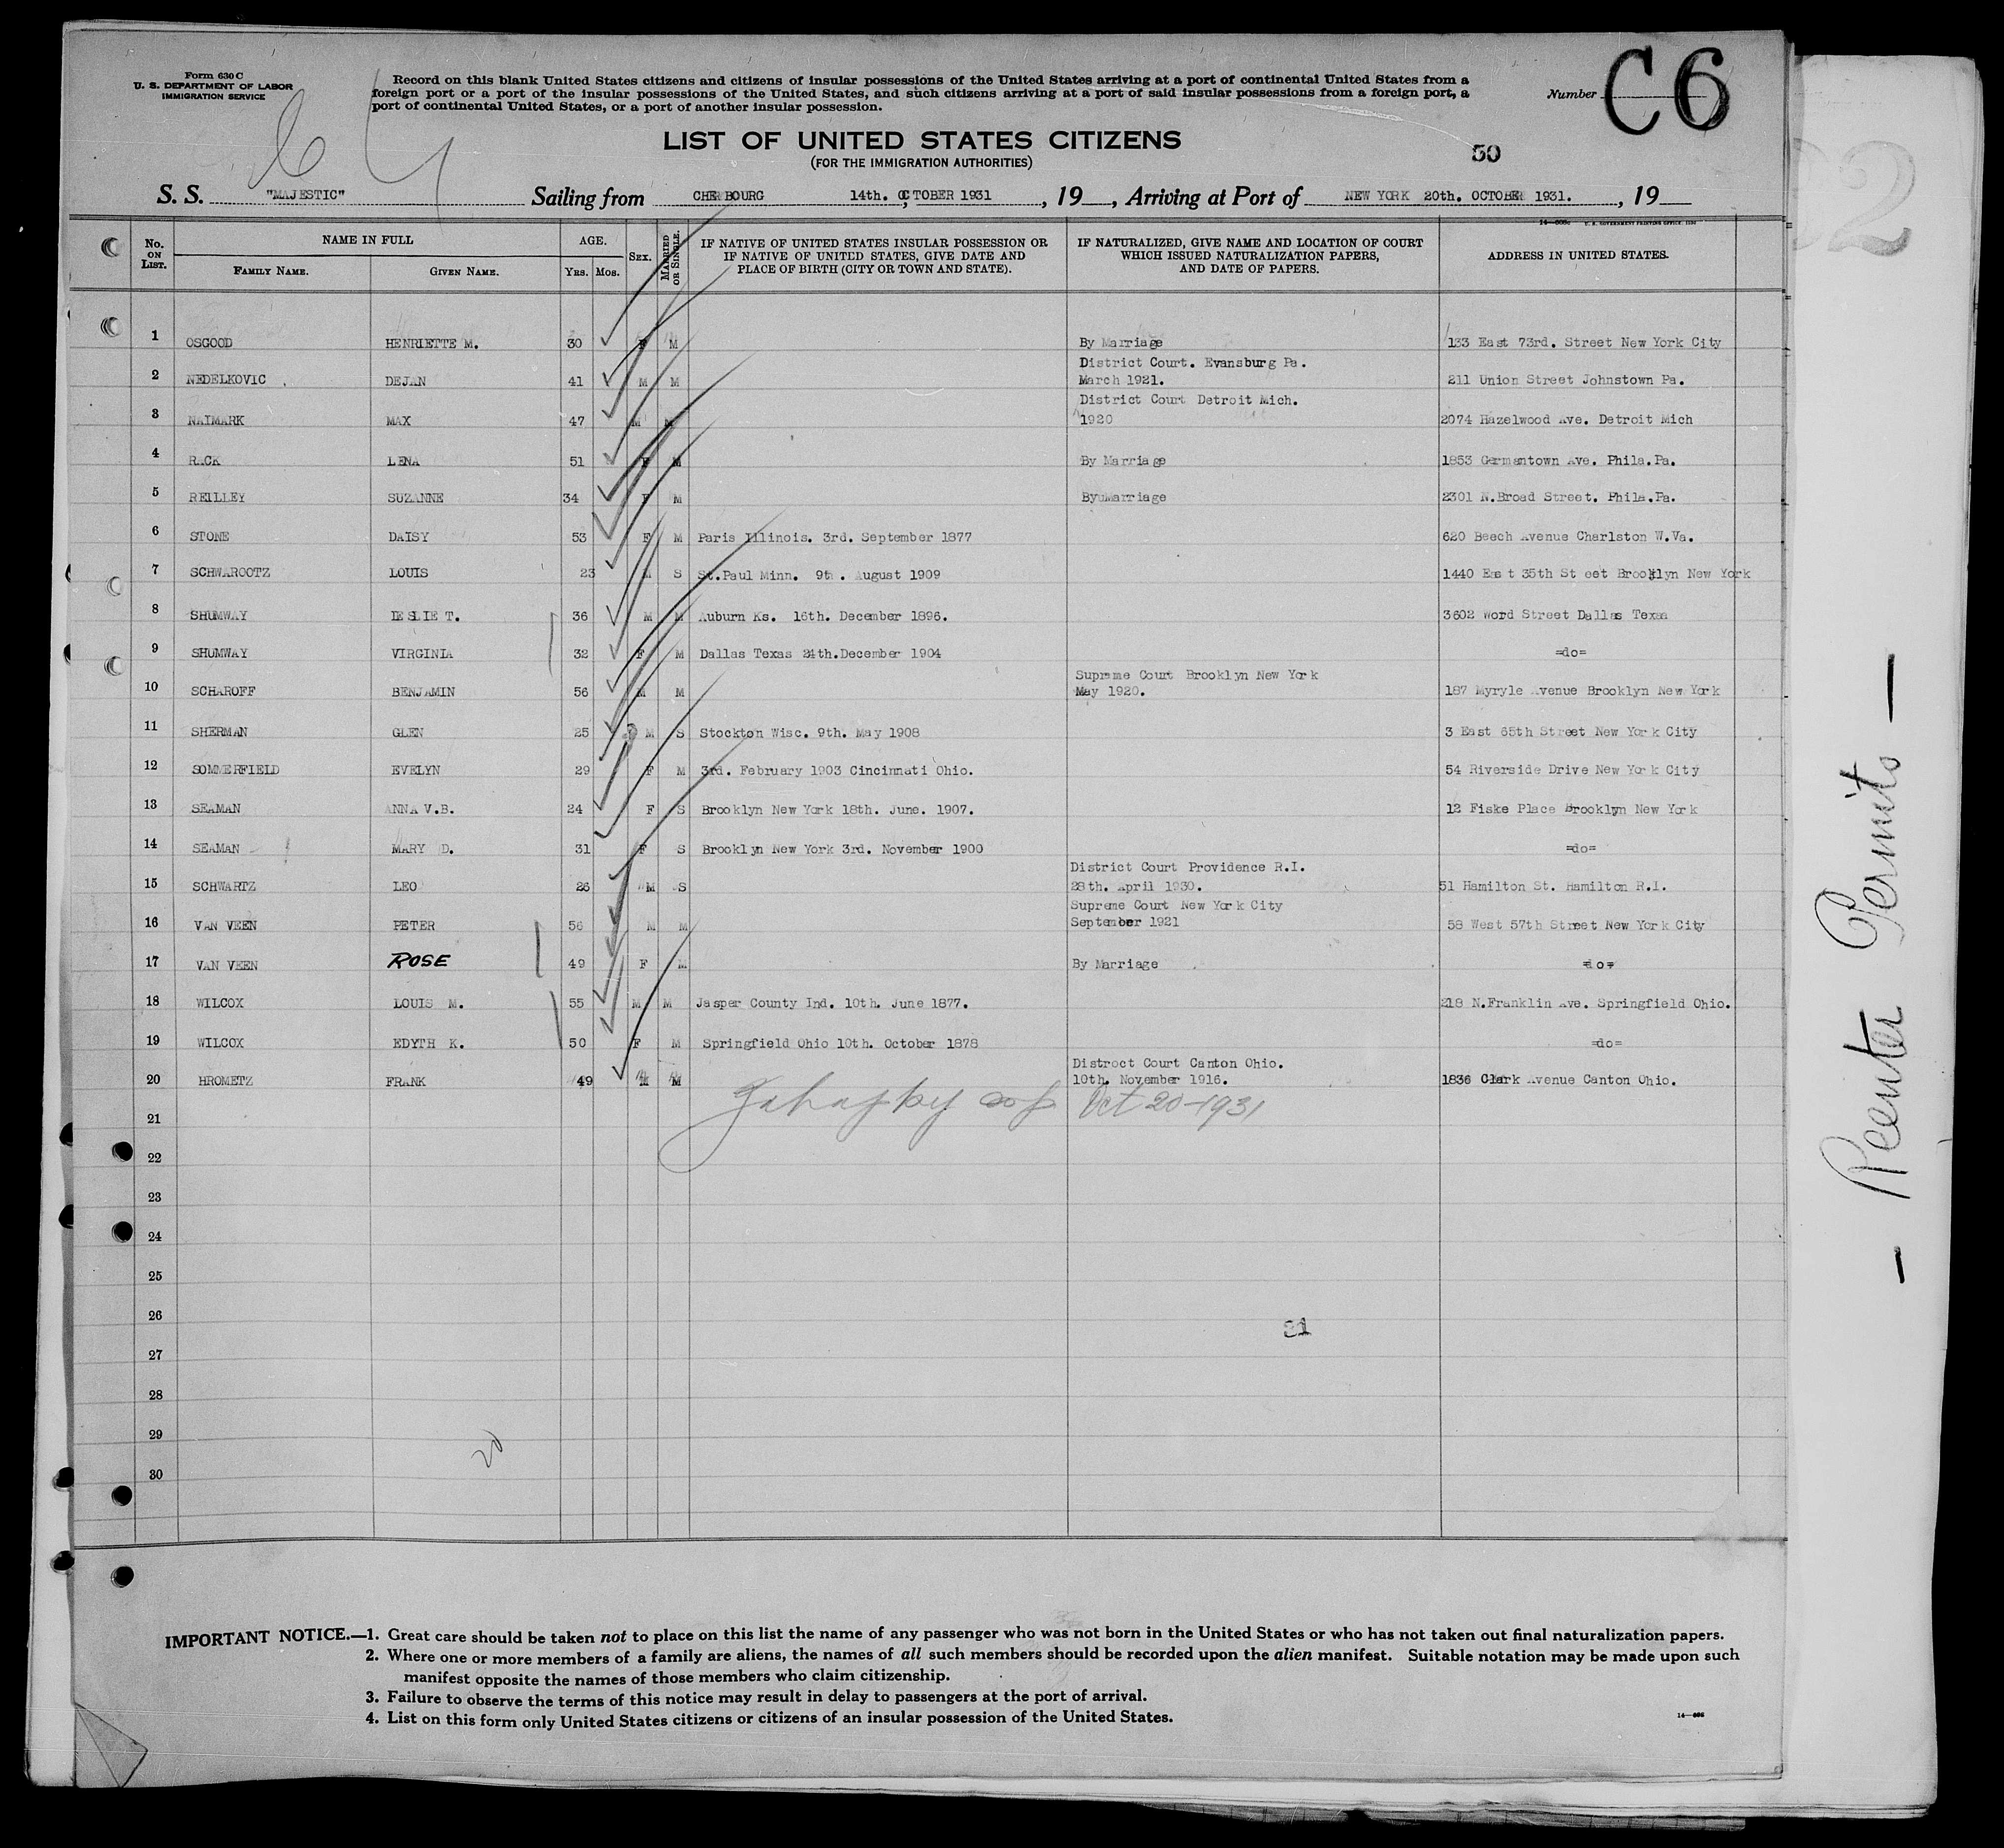 Form 630 C
U. S. DEPARTMENT OF LABOR
IMMIGRATION SERVICE
Record on this blank United States citizens and citizens of insular possessions of the United States arriving at a port of continental United States from a
foreign port or a port of the insular possessions of the United States, and such citizens arriving at a port of said insular possessions from a foreign port, a
port of continental United States, or a port of another insular possession.
Number C6
LIST OF UNITED STATES CITIZENS
(FOR THE IMMIGRATION AUTHORITIES)
50
S. S. "MAJESTIC" Sailing from CHERBOURG 14th. OCTOBER 1931, 19__, Arriving at Port of NEW YORK 20th. OCTOBER 1931., 19__
No. ON LIST. NAME IN FULL FAMILY NAME. GIVEN NAME. AGE. YRS. MOS. SEX. MARRIED OR SINGLE. IF NATIVE OF UNITED STATES INSULAR POSSESSION OR IF NATIVE OF UNITED STATES, GIVE DATE AND PLACE OF BIRTH (CITY OR TOWN AND STATE). IF NATURALIZED, GIVE NAME AND LOCATION OF COURT WHICH ISSUED NATURALIZATION PAPERS, AND DATE OF PAPERS. ADDRESS IN UNITED STATES.
1 OSGOOD HENRIETTE M. 30 F M By Marriage 133 East 73rd. Street New York City
2 NEDELKOVIC DEJAN 41 M M District Court. Evansburg Pa. March 1921. 211 Union Street Johnstown Pa.
3 NAIMARK MAX 47 M M District Court Detroit Mich. 1920 2074 Hazelwood Ave. Detroit Mich
4 RACK LENA 51 F M By Marriage 1853 Germantown Ave. Phila.Pa.
5 REILLEY SUZANNE 34 F M ByuMarriage 2301 N.Broad Street. Phila.Pa.
6 STONE DAISY 53 F M Paris Illinois. 3rd. September 1877 620 Beech Avenue Charlston W.Va.
7 SCHWAROOTZ LOUIS 23 M S St.Paul Minn. 9th. August 1909 1440 East 35th St eet Brooklyn New York
8 SHUMWAY LESLIE T. 36 M M Auburn Ks. 16th. December 1896. 3602 Word Street Dallas Texas
9 SHUMWAY VIRGINIA 32 F M Dallas Texas 24th.December 1904 =do=
10 SCHAROFF BENJAMIN 56 M M Supreme Court Brooklyn New York May 1920. 187 Myryle Avenue Brooklyn New York
11 SHERMAN GLEN 25 M S Stockton Wisc. 9th. May 1908 3 East 65th Street New York City
12 SOMMERFIELD EVELYN 29 F M 3rd. February 1903 Cincinnati Ohio. 54 Riverside Drive New York City
13 SEAMAN ANNA V.B. 24 F S Brooklyn New York 18th. June. 1907. 12 Fiske Place Brooklyn New York
14 SEAMAN MARY D. 31 F S Brooklyn New York 3rd. November 1900 =do=
15 SCHWARTZ LEO 26 M S District Court Providence R.I. 28th. April 1930. 51 Hamilton St. Hamilton R.I.
16 VAN VEEN PETER 56 M M Supreme Court New York City September 1921 58 West 57th Street New York City
17 VAN VEEN ROSE 49 F M By Marriage =do=
18 WILCOX LOUIS M. 55 M M Jasper County Ind. 10th. June 1877. 218 N.Franklin Ave. Springfield Ohio.
19 WILCOX EDYTH K. 50 F M Springfield Ohio 10th. October 1878 =do=
20 HROMETZ FRANK 49 M M Distroct Court Canton Ohio. 10th. November 1916. 1836 Clark Avenue Canton Ohio.
Oct 20-1931
21
22
23
24
25
26
27
28
29
30
20
IMPORTANT NOTICE.—1. Great care should be taken not to place on this list the name of any passenger who was not born in the United States or who has not taken out final naturalization papers.
2. Where one or more members of a family are aliens, the names of all such members should be recorded upon the alien manifest. Suitable notation may be made upon such
manifest opposite the names of those members who claim citizenship.
3. Failure to observe the terms of this notice may result in delay to passengers at the port of arrival.
4. List on this form only United States citizens or citizens of an insular possession of the United States.
— Reenter Permits —